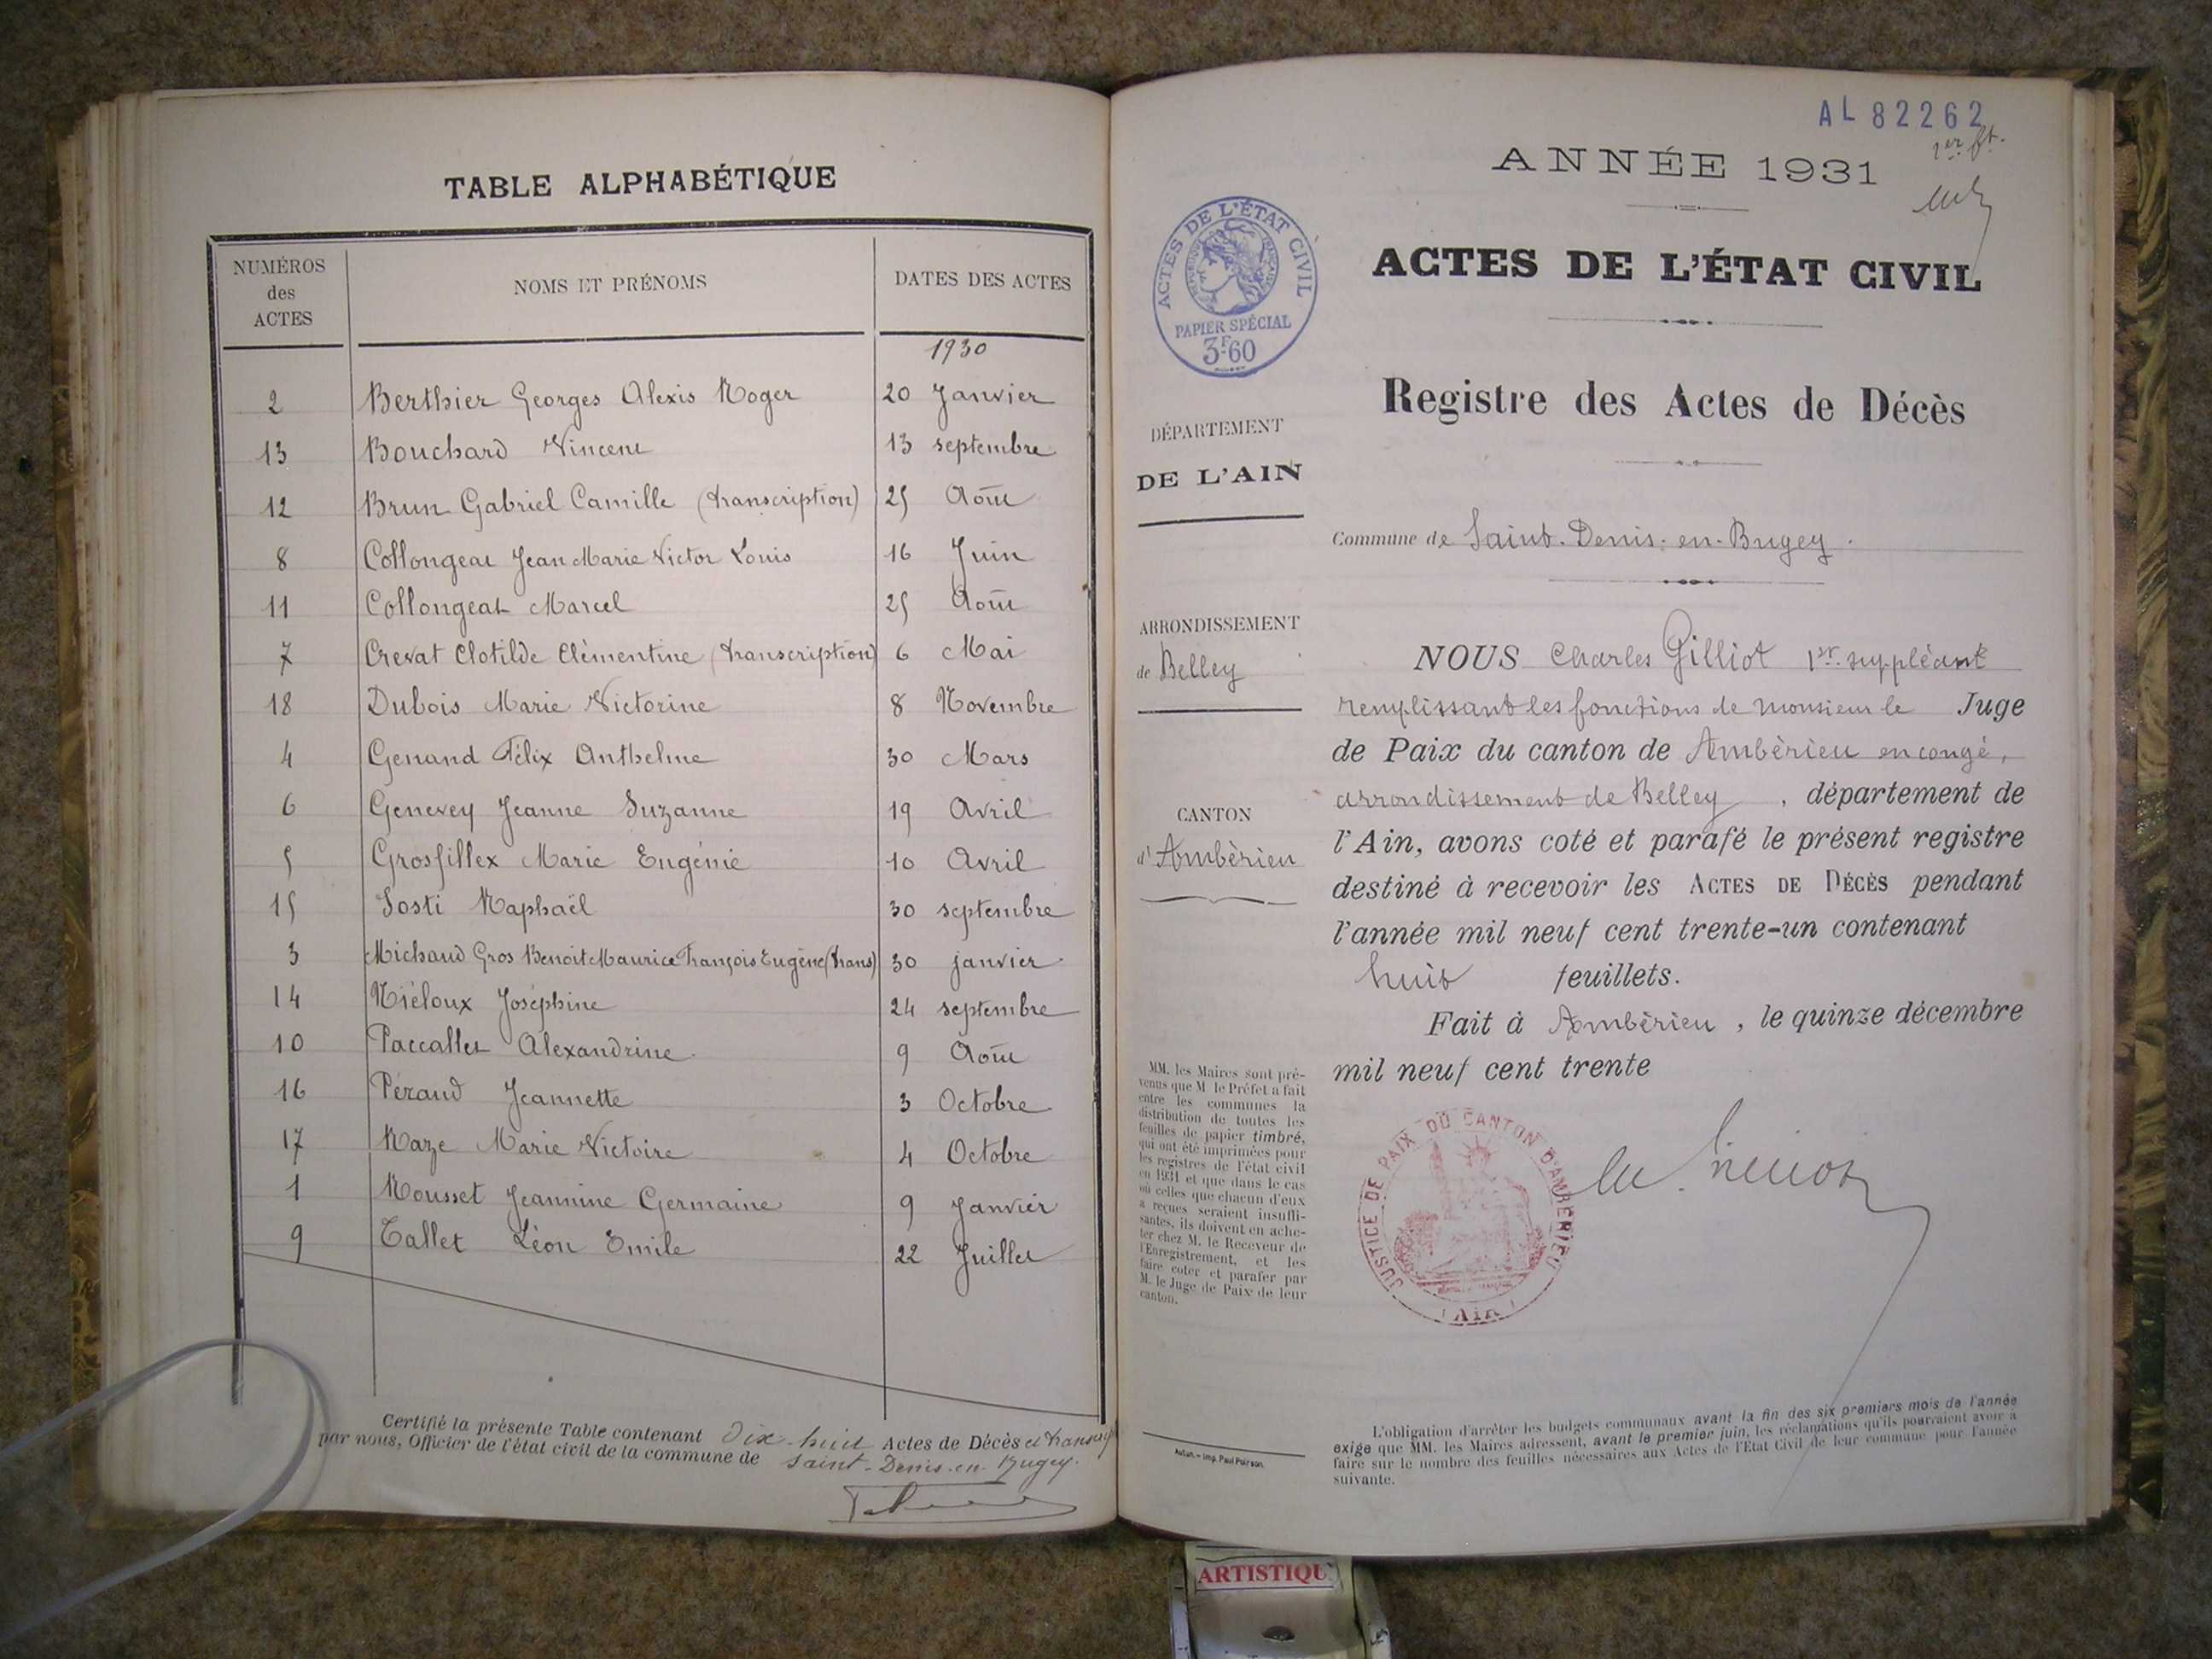 TABLE ALPHABÉTIQUE
NUMÉROS
des
ACTES
NOMS ET PRÉNOMS
DATES DES ACTES
1930
2 Berthier Georges Alexis Roger 20 Janvier
13 Bouchard Vincent 13 septembre
12 Brun Gabriel Camille (transcription) 25 Août
8 Collongeat Jean Marie Victor Louis 16 Juin
11 Collongeat Marcel 25 Août
7 Crevat Clotilde Clémentine (transcription) 6 Mai
18 Dubois Marie Victorine 8 Novembre
4 Genand Félix Anthelme 30 Mars
6 Genevey Jeanne Suzanne 19 Avril
5 Grosfillex Marie Eugénie 10 Avril
15 Josti Raphaël 30 septembre
3 Michaud Gros Benoit Maurice François Eugène (trans) 30 janvier
14 Niéloux Joséphine 24 septembre
10 Paccallet Alexandrine 9 Août
16 Péraud Jeannette 3 Octobre
17 Raze Marie Victoire 4 Octobre
1 Rousset Jeannine Germaine 9 Janvier
9 Tallet Léon Emile 22 Juillet
Certifié la présente Table contenant Dix-huit Actes de Décès et
par nous, Officier de l'état civil de la commune de Saint-Denis-en-Bugey.
AL 82262
1er ft.
ANNÉE 1931
ACTES DE L'ÉTAT CIVIL
RÉPUBLIQUE FRANÇAISE
PAPIER SPÉCIAL
3F60
ACTES DE L'ÉTAT CIVIL
Registre des Actes de Décès
DÉPARTEMENT
DE L'AIN
Commune de Saint-Denis-en-Bugey.
ARRONDISSEMENT
de Belley
CANTON
d'Ambérieu
NOUS Charles Gilliot 1er suppléant
remplissant les fonctions de Monsieur le Juge
de Paix du canton de Ambérieu en congé,
arrondissement de Belley, département de
l'Ain, avons coté et parafé le présent registre
destiné à recevoir les ACTES DE DÉCÈS pendant
l'année mil neuf cent trente-un contenant
huit feuillets.
Fait à Ambérieu, le quinze décembre
mil neuf cent trente
MM. les Maires sont pré-
venus que M. le Préfet a fait
entre les communes la
distribution de toutes les
feuilles de papier timbré,
qui ont été imprimées pour
les registres de l'état civil
en 1931 et que dans le cas
où celles que chacun d'eux
a reçues seraient insuffi-
santes, ils doivent en ache-
ter chez M. le Receveur de
l'Enregistrement, et les
faire coter et parafer par
M. le Juge de Paix de leur
canton.
JUSTICE DE PAIX DU CANTON D'AMBÉRIEU
(AIN)
Autun. – Imp. Paul Poirson
L'obligation d'arrêter les budgets communaux avant la fin des six premiers mois de l'année
exige que MM. les Maires adressent, avant le premier juin, les réclamations qu'ils pourraient avoir à
faire sur le nombre des feuilles nécessaires aux Actes de l'Etat Civil de leur commune pour l'année
suivante.
ARTISTIQU